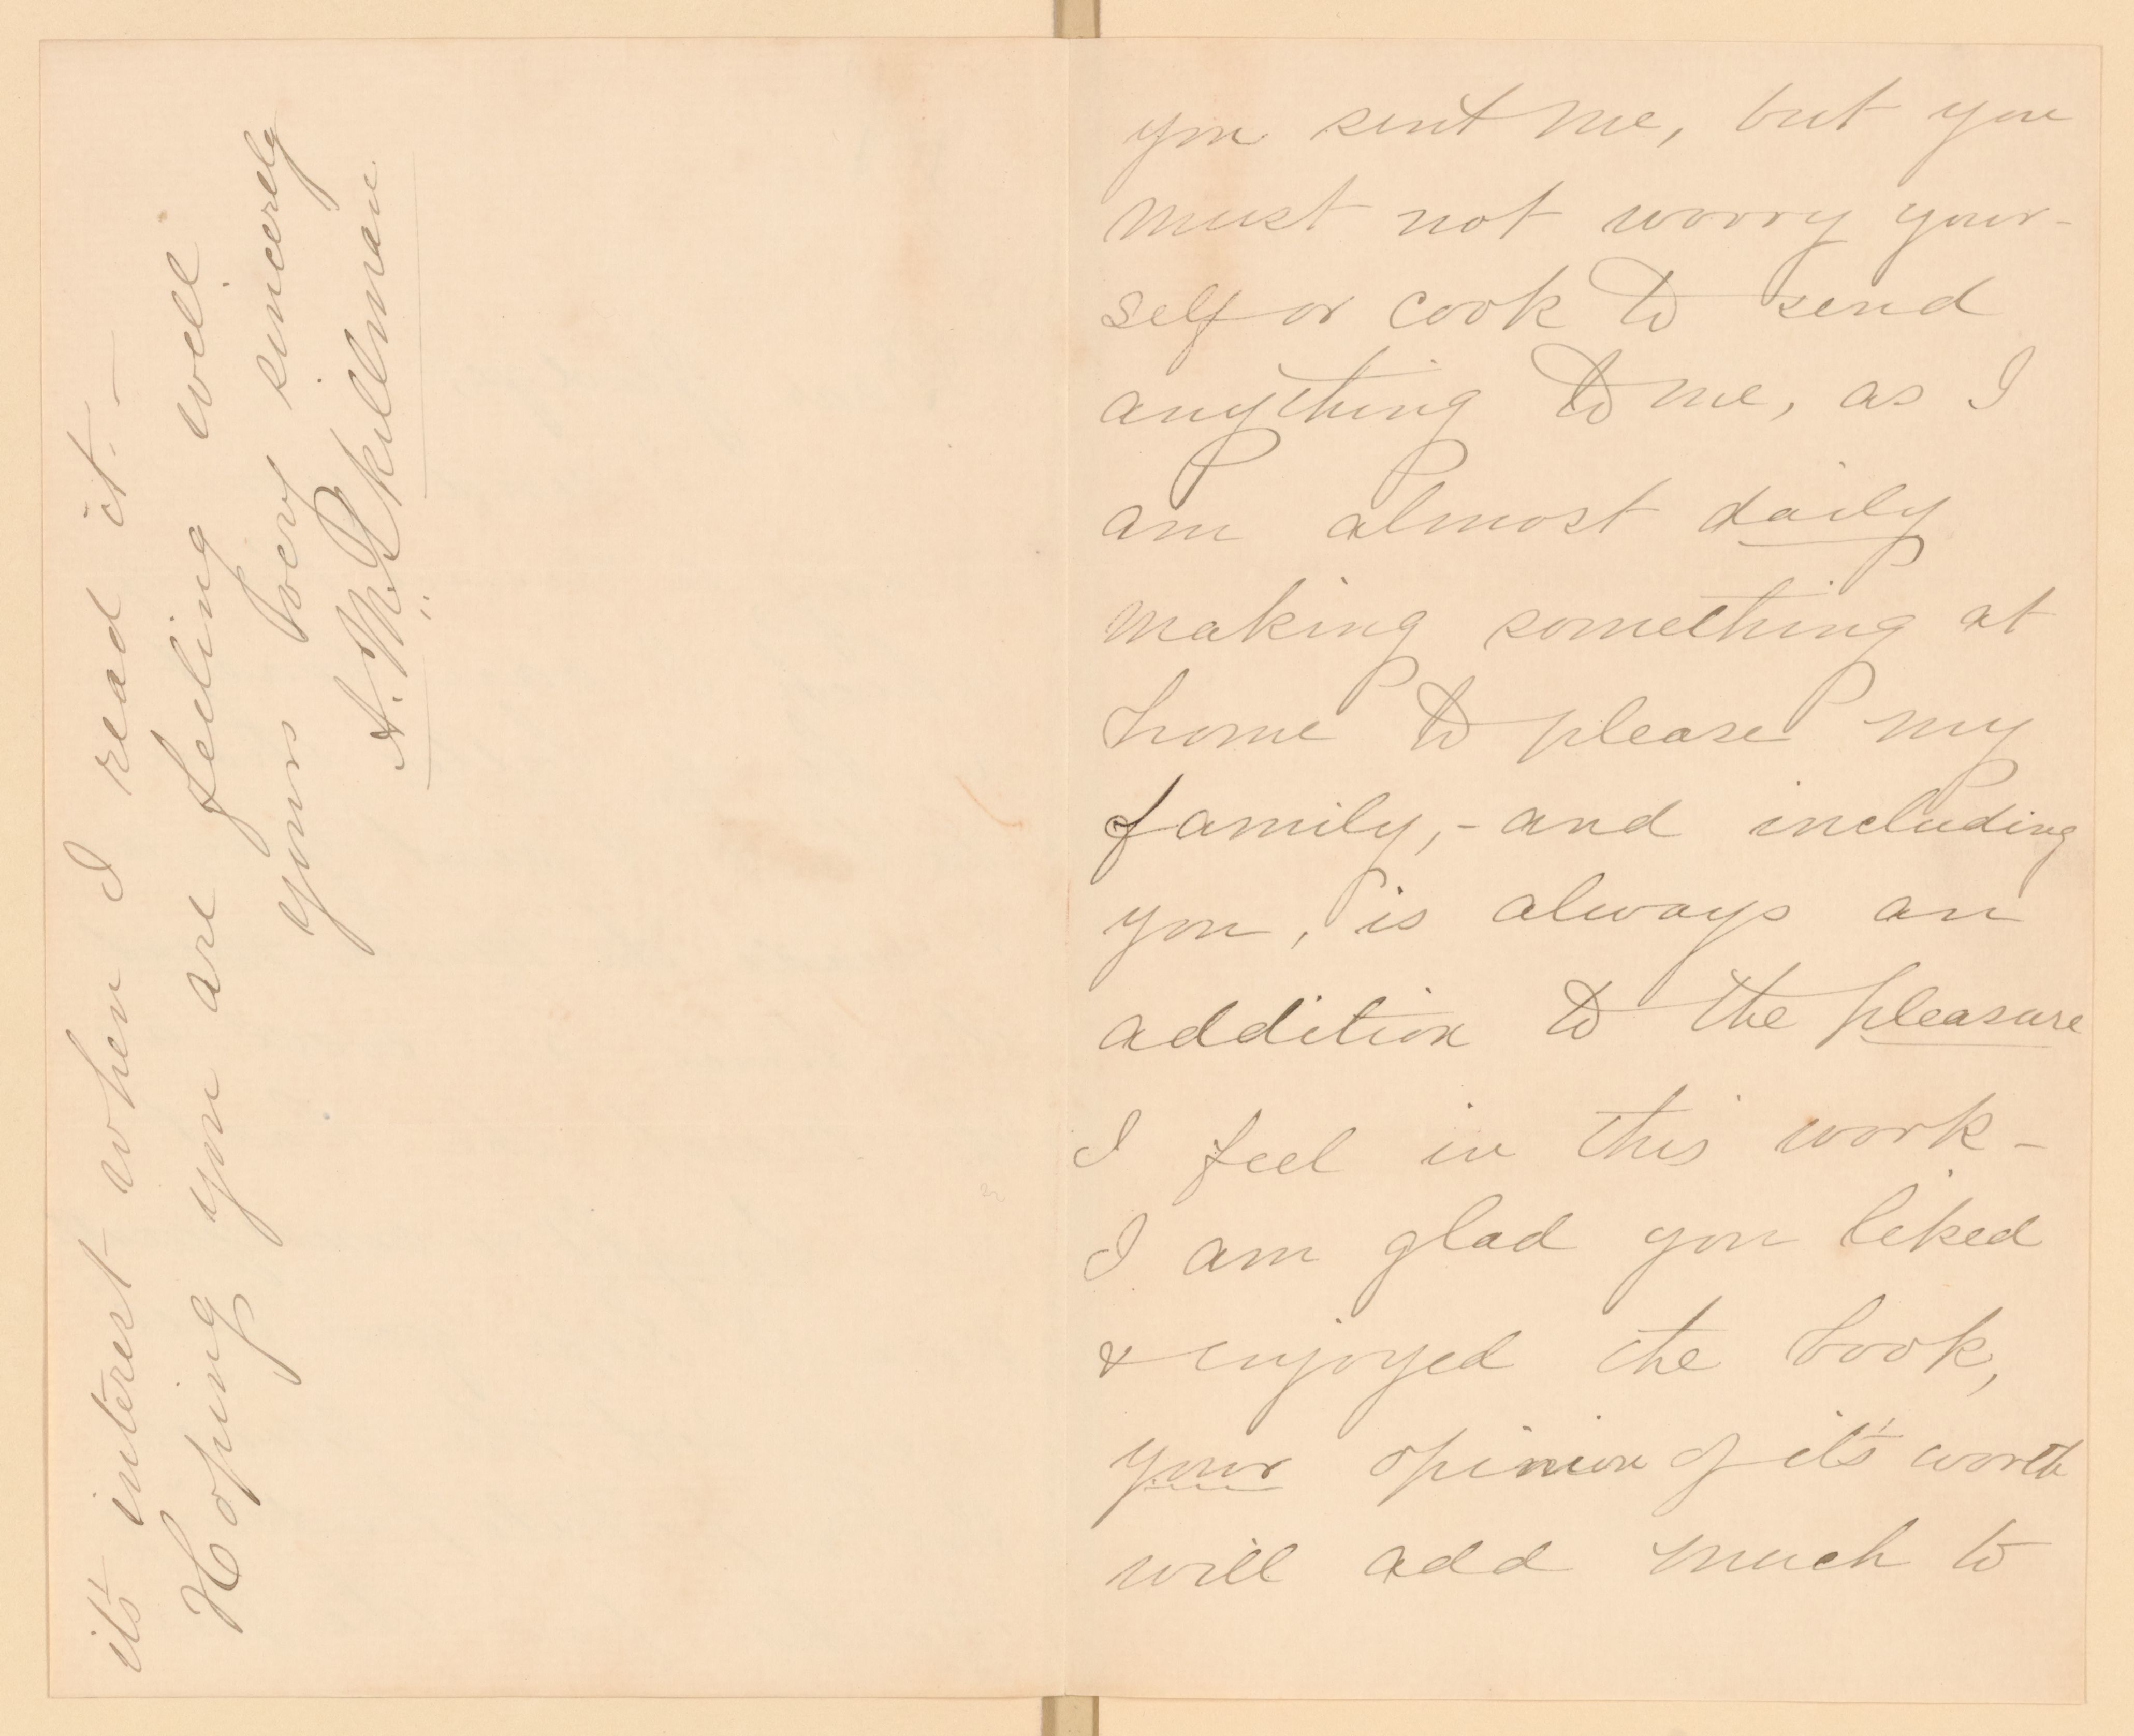 you sent me, but you
must not worry your-
self or cook to send
anything to me, as I
am almost daily
making something at
home to please my
family,- and including
you, is always an
addition to the pleasure
I feel in this work-
I am glad you liked
& enjoyed the book,
your opinion of it's worth
will add much to
it's interest when I read it.-
Hoping you are feeling well
yours very sincerely
A. M. Skillman